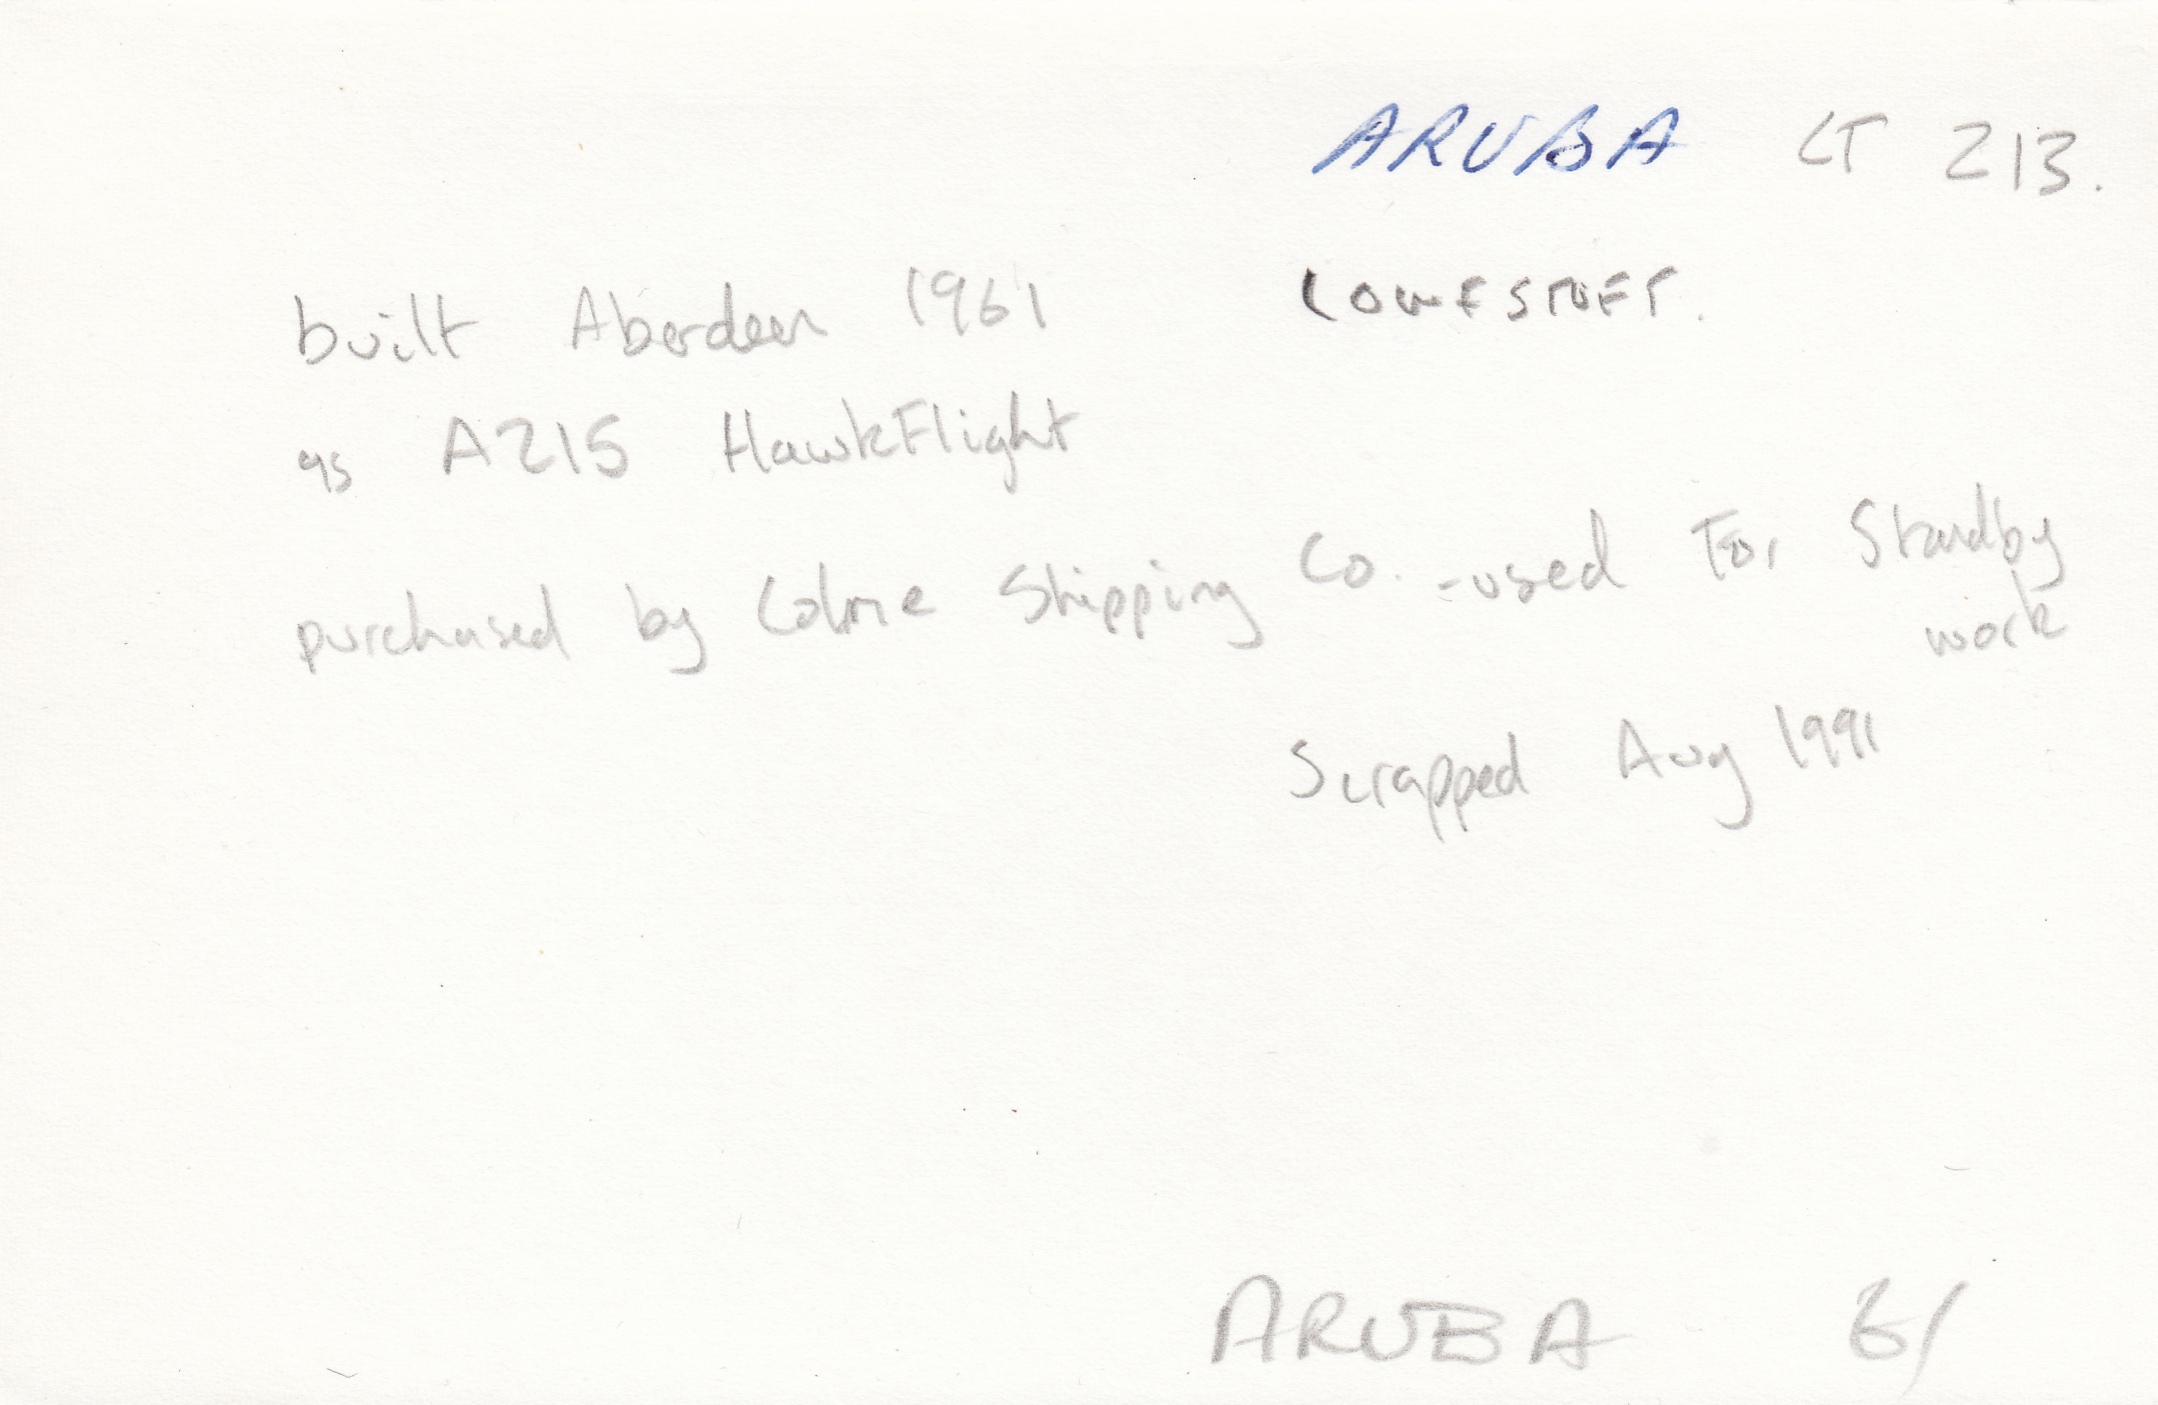 ARUBA LT 213.
LOWESTOFT.
built Aberdeen 1961
as A215 HawkFlight
purchased by Colne Shipping Co. - used For Standby
work
Scrapped Aug 1991
ARUBA 61